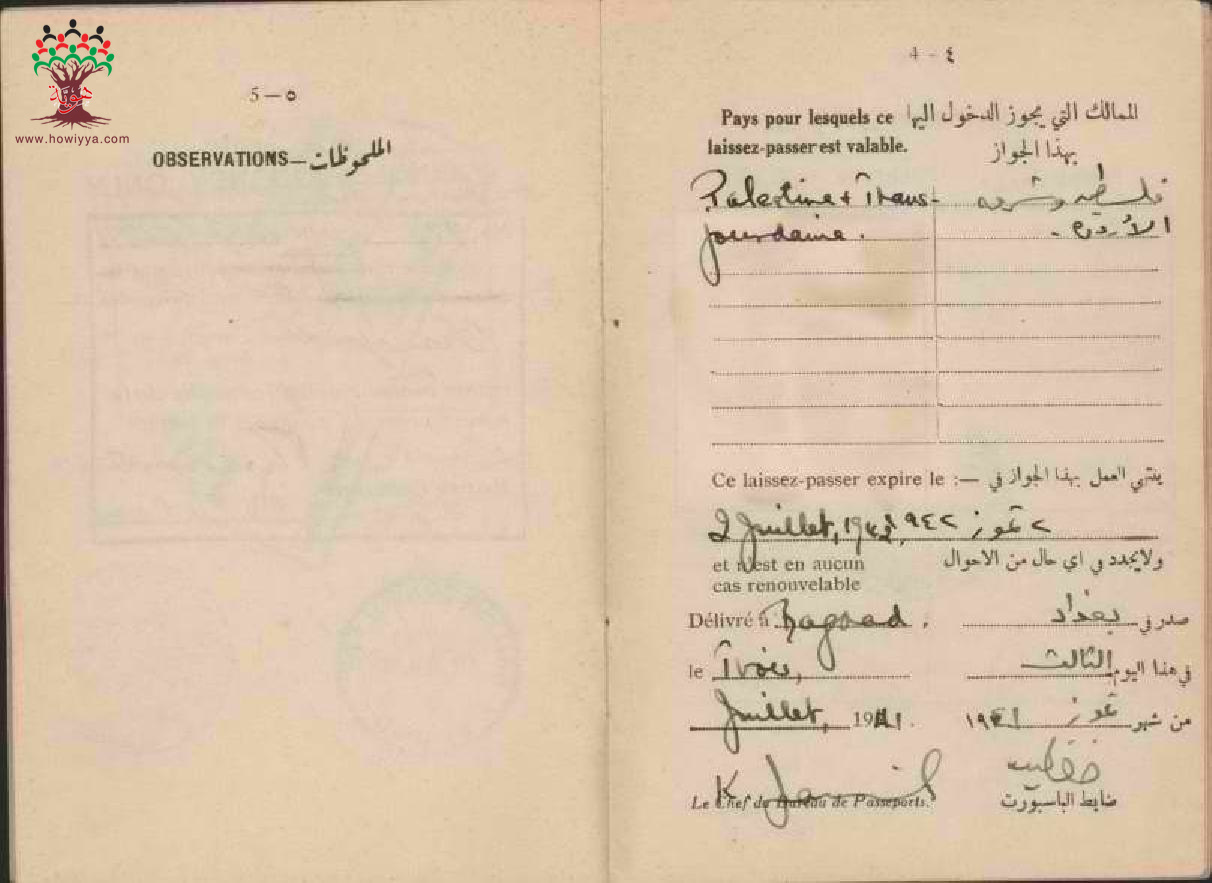 هوية
www.howiyya.com
5 — ٥
OBSERVATIONS — الملحوظات
4 - ٤
Pays pour lesquels ce الممالك التي يجوز الدخول اليها
laissez-passer est valable. بهذا الجواز
Palestine & Trans- فلسطين وشرق
jourdaine. الأردن.
Ce laissez-passer expire le :— ينتهي العمل بهذا الجواز في
2 Juillet, 1942 ٢ تموز ٩٤٢
et n'est en aucun ولا يجدد في اي حال من الاحوال
cas renouvelable
Délivré à Bagdad. صدر في بغداد
le Trois, في هذا اليوم الثالث
Juillet, 1941. من شهر تموز ١٩٤١
K. Jamil
Le Chef du Bureau de Passeports. ضابط الباسبورت